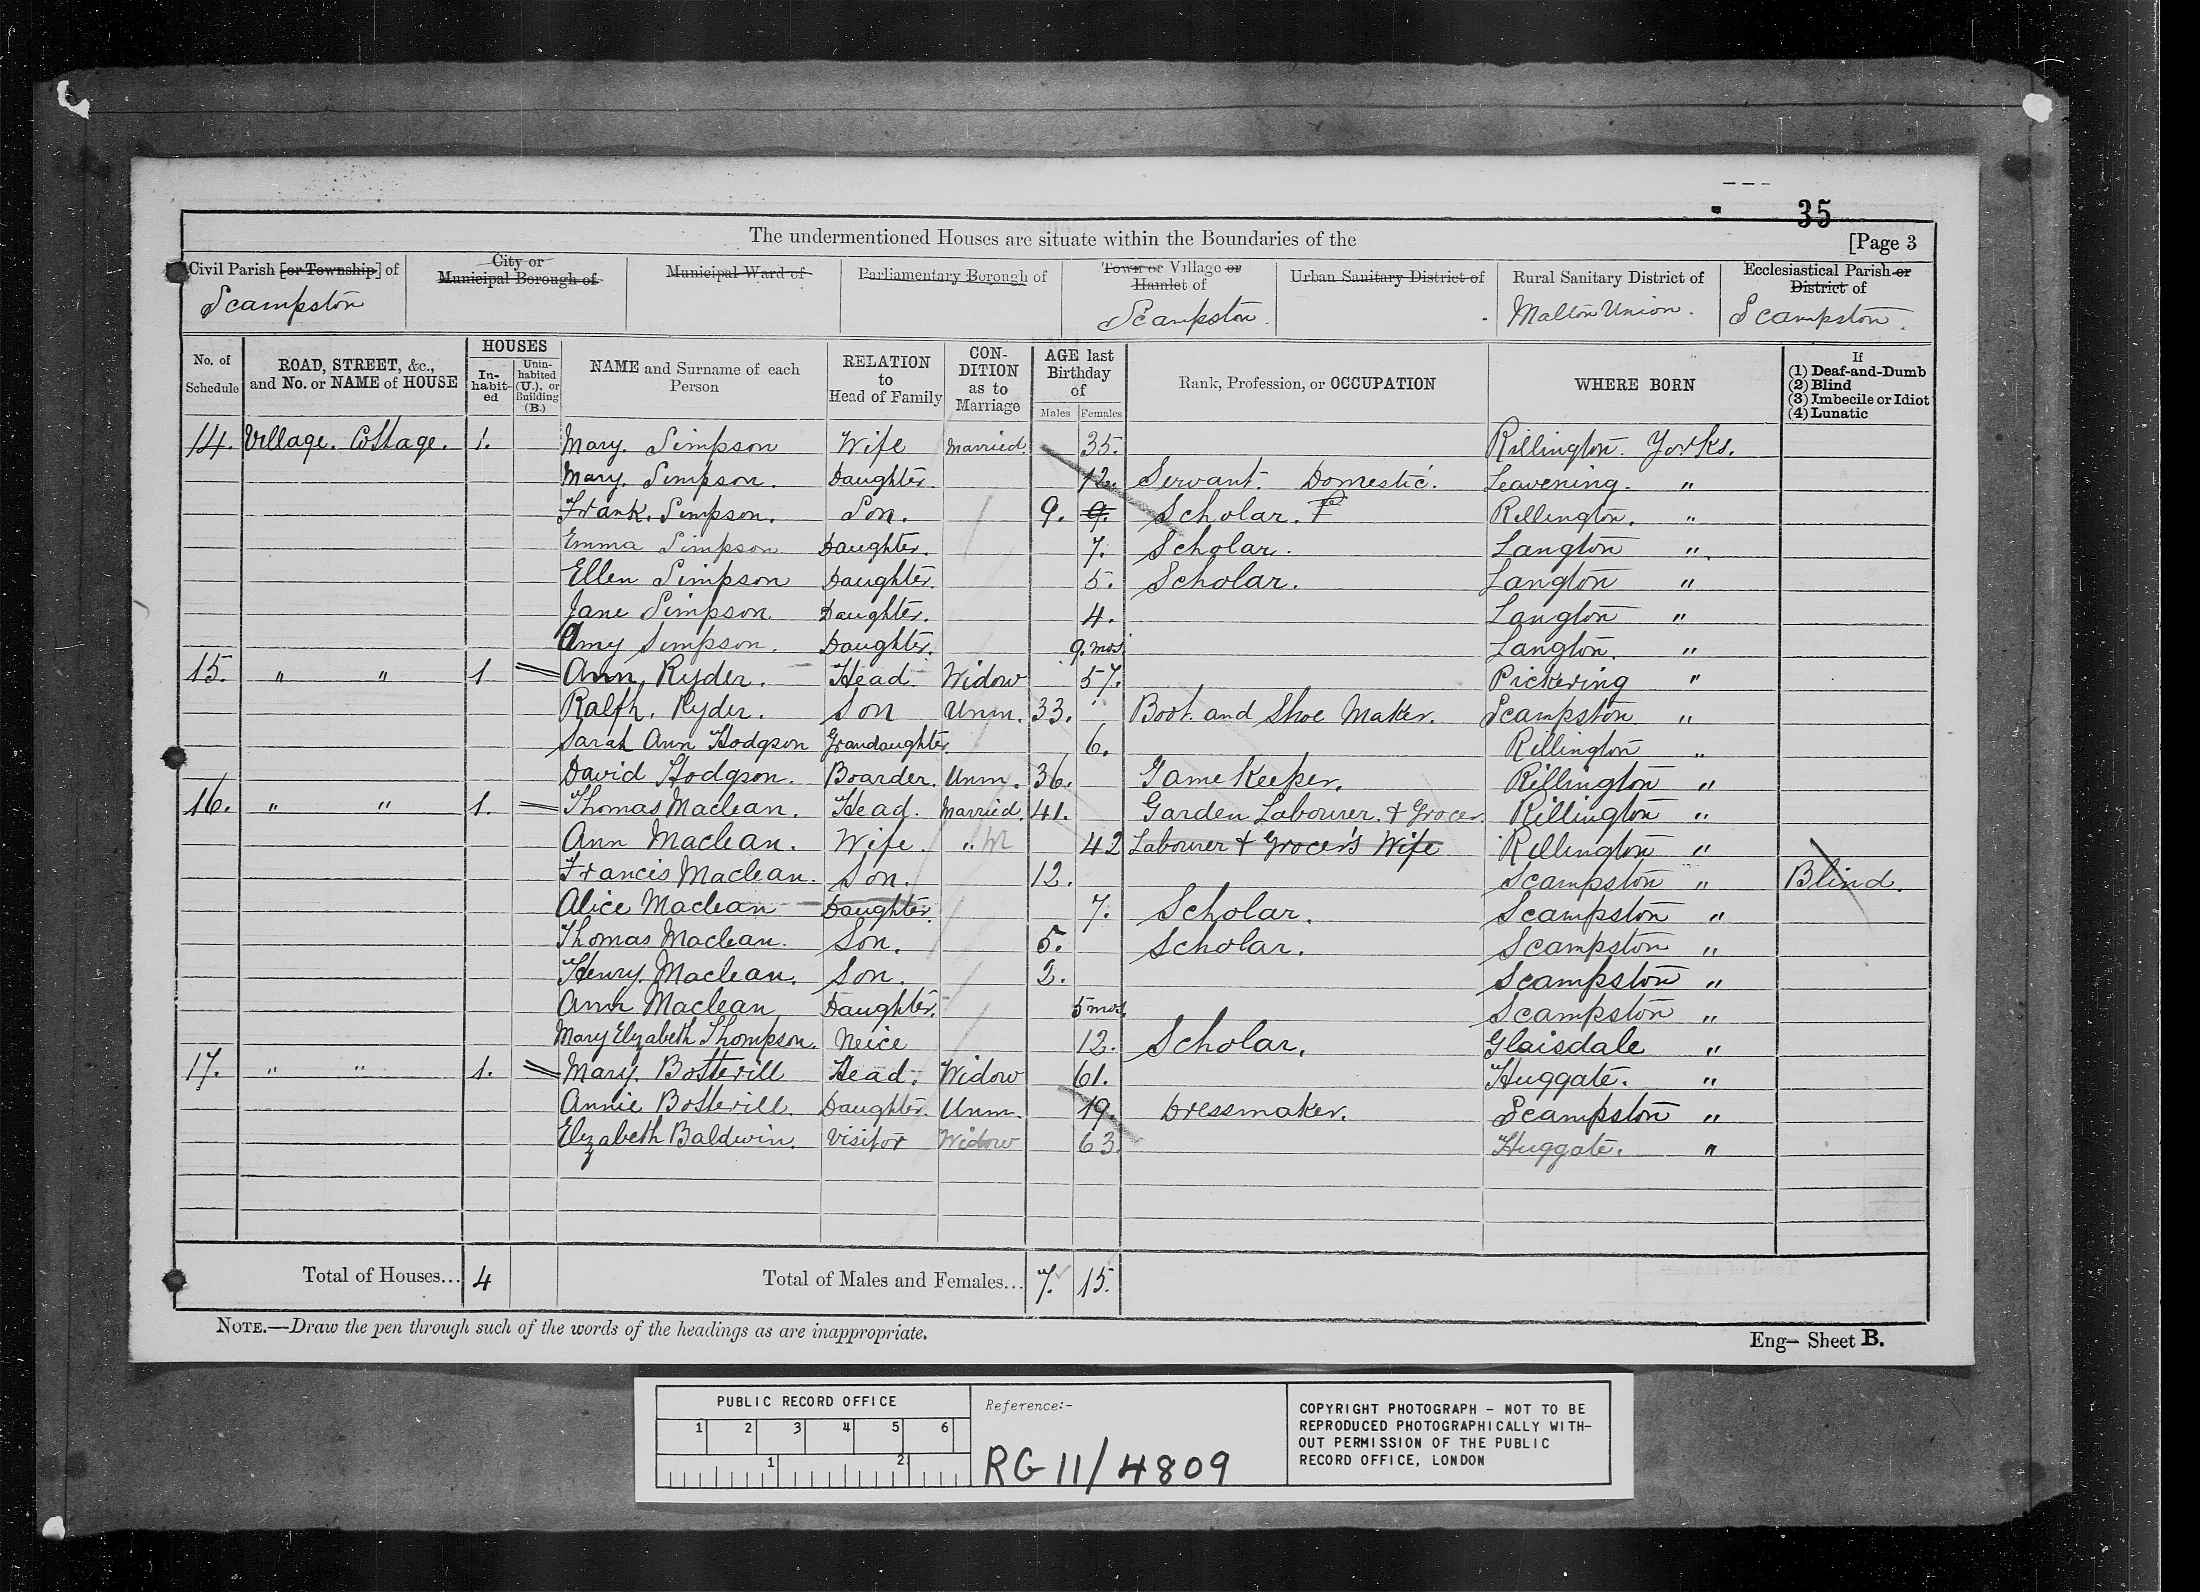 35
The undermentioned Houses are situate within the Boundaries of the [Page 3
Civil Parish [or Township] of City or Municipal Borough of Municipal Ward of Parliamentary Borough of Town or Village or Hamlet of Urban Sanitary District of Rural Sanitary District of Ecclesiastical Parish or District of
Scampston Scampston. Malton Union. Scampston.
No. of Schedule ROAD, STREET, &c., and No. or NAME of HOUSE HOUSES In-habit-ed Unin-habited (U.), or Building (B.) NAME and Surname of each Person RELATION to Head of Family CON-DITION as to Marriage AGE last Birthday of Males Females Rank, Profession, or OCCUPATION WHERE BORN If (1) Deaf-and-Dumb (2) Blind (3) Imbecile or Idiot (4) Lunatic
14. Village. Cottage. 1. Mary. Simpson Wife Married. 35. Rillington. Yorks.
Mary. Simpson. Daughter. 12. Servant. Domestic. Leavening. "
Frank. Simpson. Son. 9. 9. Scholar. Rillington. "
Emma Simpson Daughter. 7. Scholar. Langton "
Ellen Simpson Daughter. 5. Scholar. Langton "
Jane Simpson. Daughter. 4. Langton "
Amy Simpson. Daughter. 9. mos. Langton. "
15. " " 1 Ann. Ryder. Head Widow 57. Pickering "
Ralph. Ryder. Son Unm. 33. Boot. and Shoe Maker. Scampston "
Sarah Ann Hodgson Grandaughter. 6. Rillington "
David Hodgson. Boarder. Unm. 36. Game Keeper. Rillington "
16. " " 1. Thomas Maclean. Head. Married. 41. Garden Labourer. & Grocer. Rillington "
Ann Maclean. Wife. " M 42 Labourer & Grocer's Wife Rillington "
Francis Maclean. Son. 12. Scampston " Blind.
Alice Maclean Daughter. 7. Scholar. Scampston "
Thomas Maclean. Son. 5. Scholar. Scampston "
Henry. Maclean. Son. 2. Scampston "
Ann Maclean Daughter. 5 mos. Scampston "
Mary Elizabeth Thompson. Neice 12. Scholar. Glaisdale "
17. " " 1. Mary. Botterill Head. Widow 61. Huggate. "
Annie Botterill. Daughter. Unm. 19. Dressmaker. Scampston "
Elizabeth Baldwin. Visitor Widow 63. Huggate. "
Total of Houses... 4 Total of Males and Females... 7. 15.
NOTE.—Draw the pen through such of the words of the headings as are inappropriate.
Eng— Sheet B.
PUBLIC RECORD OFFICE
1 2 3 4 5 6
1 2
Reference:-
RG 11/4809
COPYRIGHT PHOTOGRAPH - NOT TO BE
REPRODUCED PHOTOGRAPHICALLY WITH-
OUT PERMISSION OF THE PUBLIC
RECORD OFFICE, LONDON